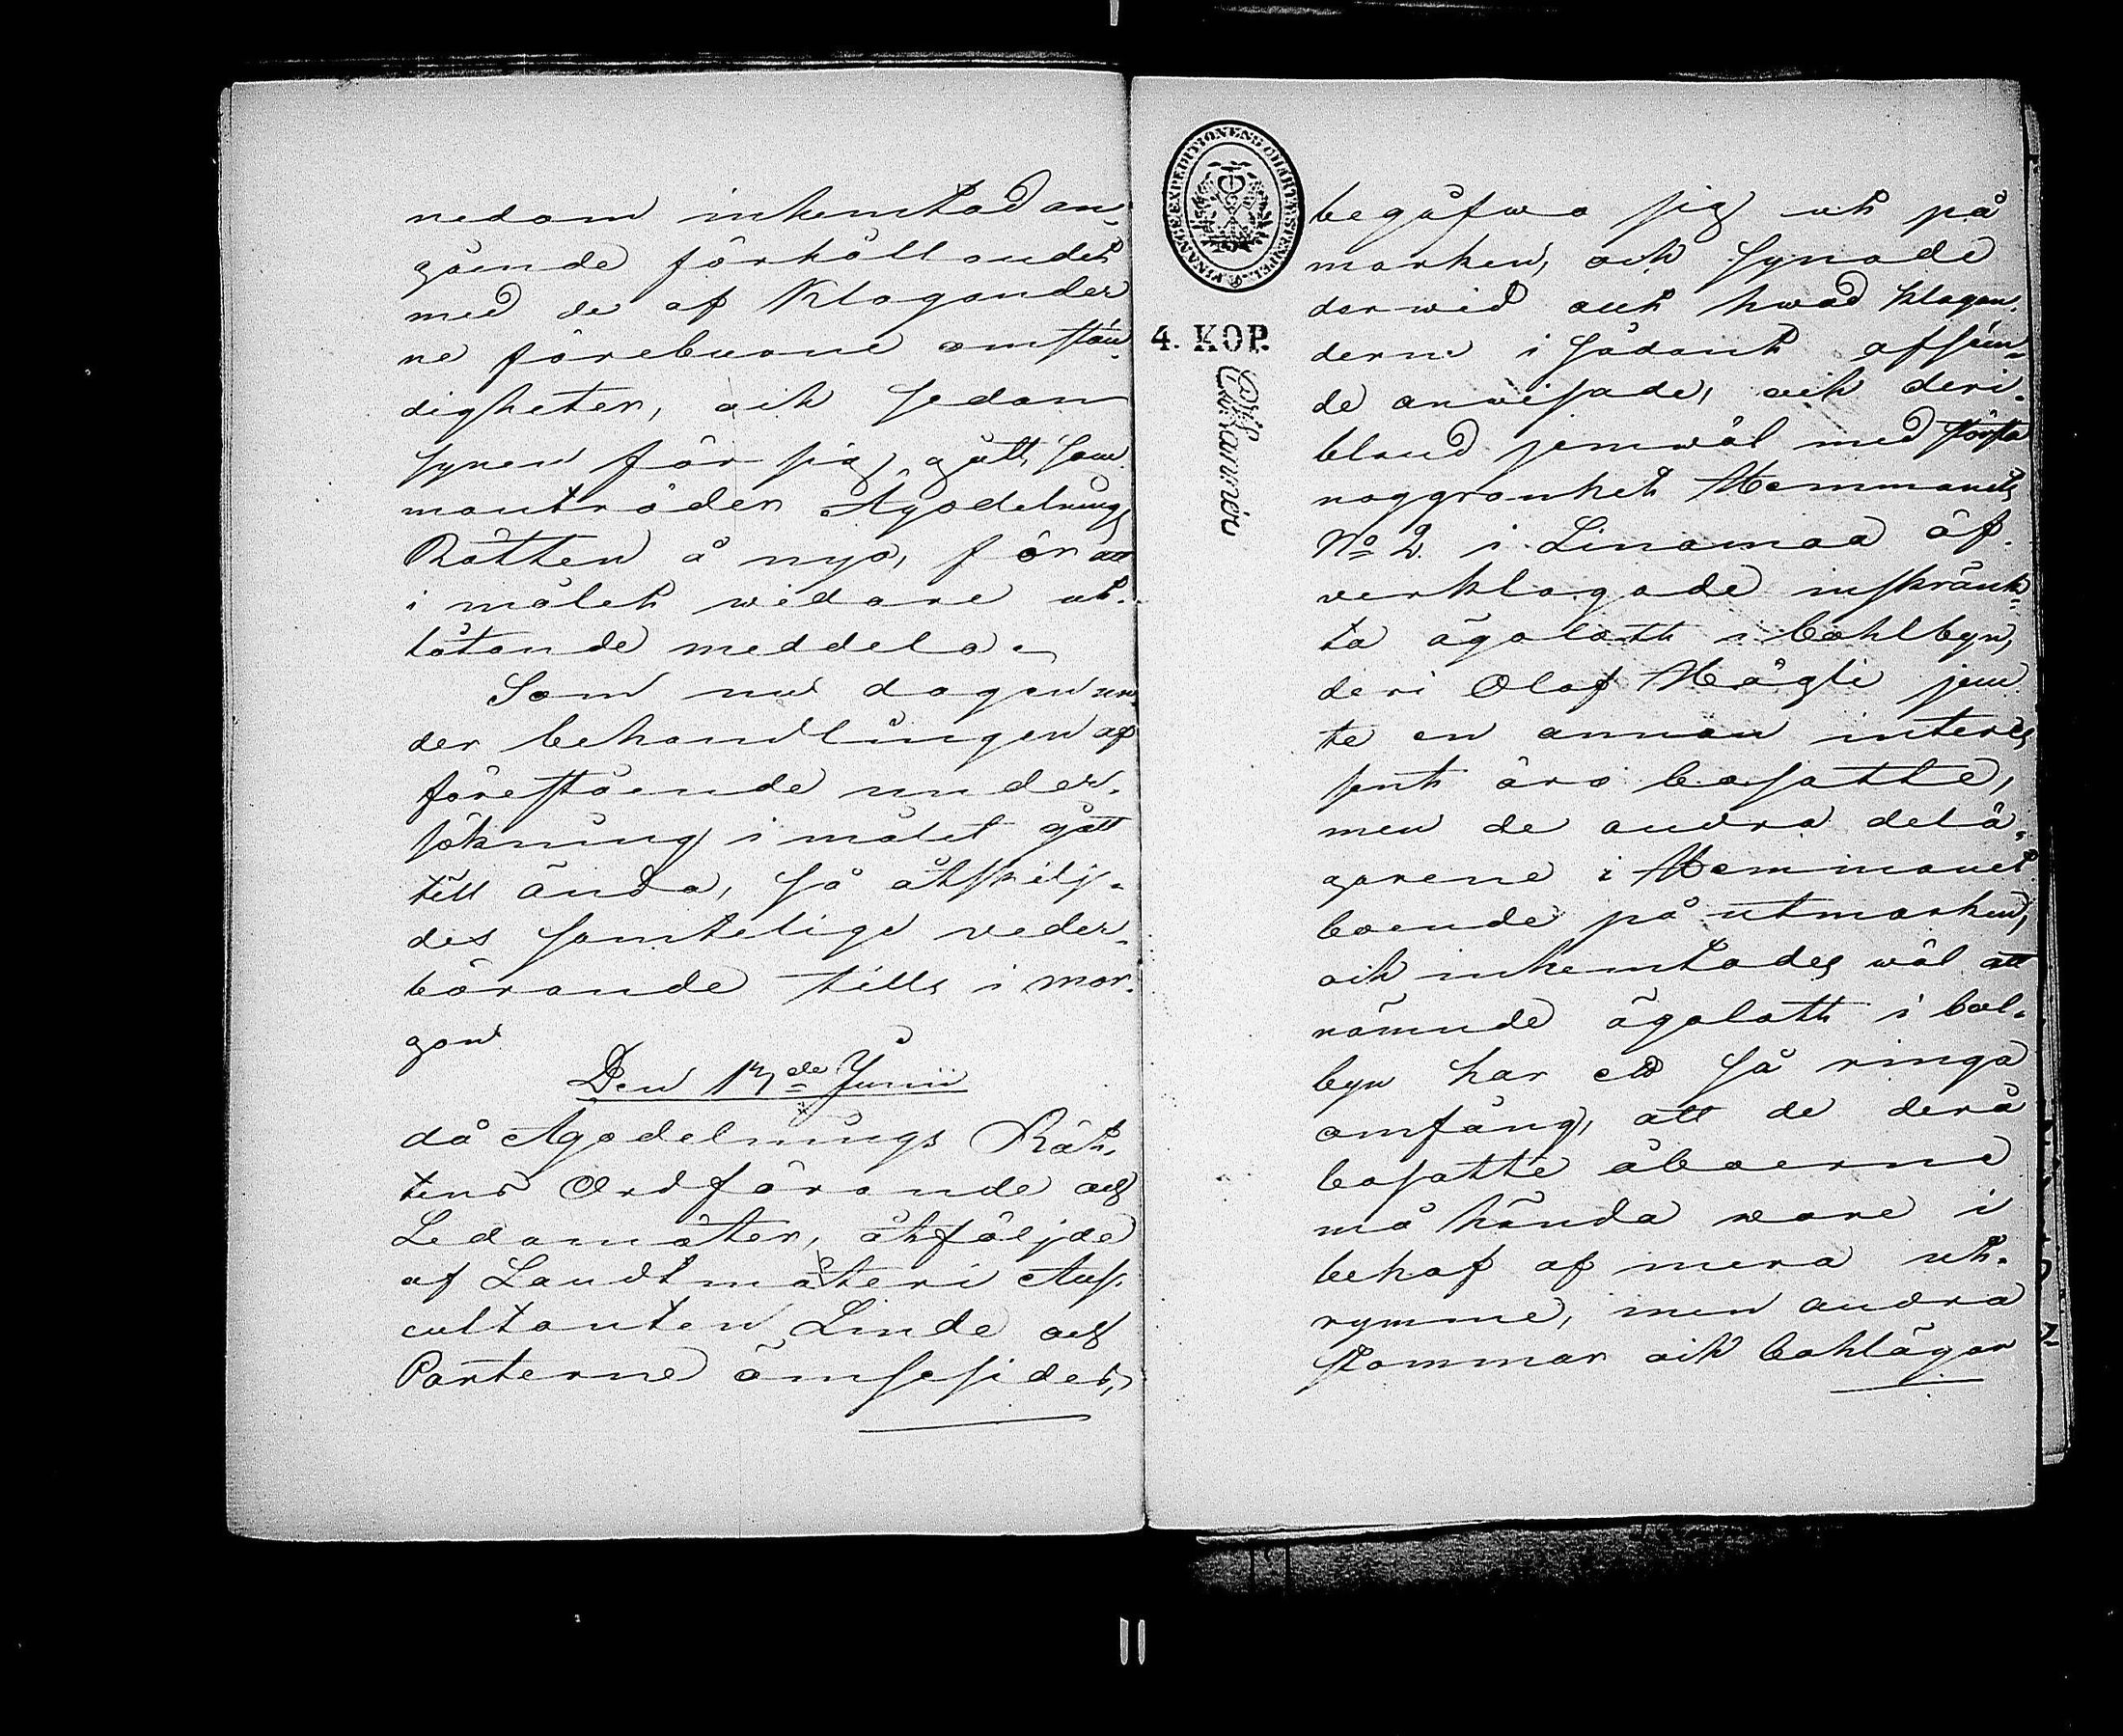 nedom inhemtad an-
gående förhållandet
med de af Klogander
ne föreburne omstän-
digheter, och sedan
synen för sig gått, sam
mantråder Ägodelnings
Rätten å nyo, för att
i målet widare ut-
låtande meddela.
Som nu dagen un
der behandlingen af
förestående under-
sökning i målet gått
till ända, så åtskilj-
des samtelige veder-
börande tills i mor-
gon
Den 17de Junii
då Ägodelnings Rät-
tens Ordförande och
Ledamöter, åtföljde
af Landtmäteri Aus-
cultanten Linde och
Parterne ömsesides,
FINANCE EXPEDITIONENS CHARTÆ STEMPEL
4. KOP.
begåfwo sig ut på
marken, och synade
derwid allt hwad klagan-
derne i sådant afseen-
de anvisade, och deri-
bland jemwäl med största
noggranhet Hemmanets
No 2 i Linamaa öf-
verklagade inskränk-
ta ägolott i bohlbyn,
deri Olof Hägli jem-
te en annan interes
sent äro bosatte,
men de andra delä-
garene i Hemmanet
boende på utmarken,
och inhemtades wäl att
nämnde ägolott i bol-
byn har ett så ringa
omfång, att de derå
bosatte åboerne
må hända vore i
behof af mera ut-
rymme, men andra
stommar och bohlägor